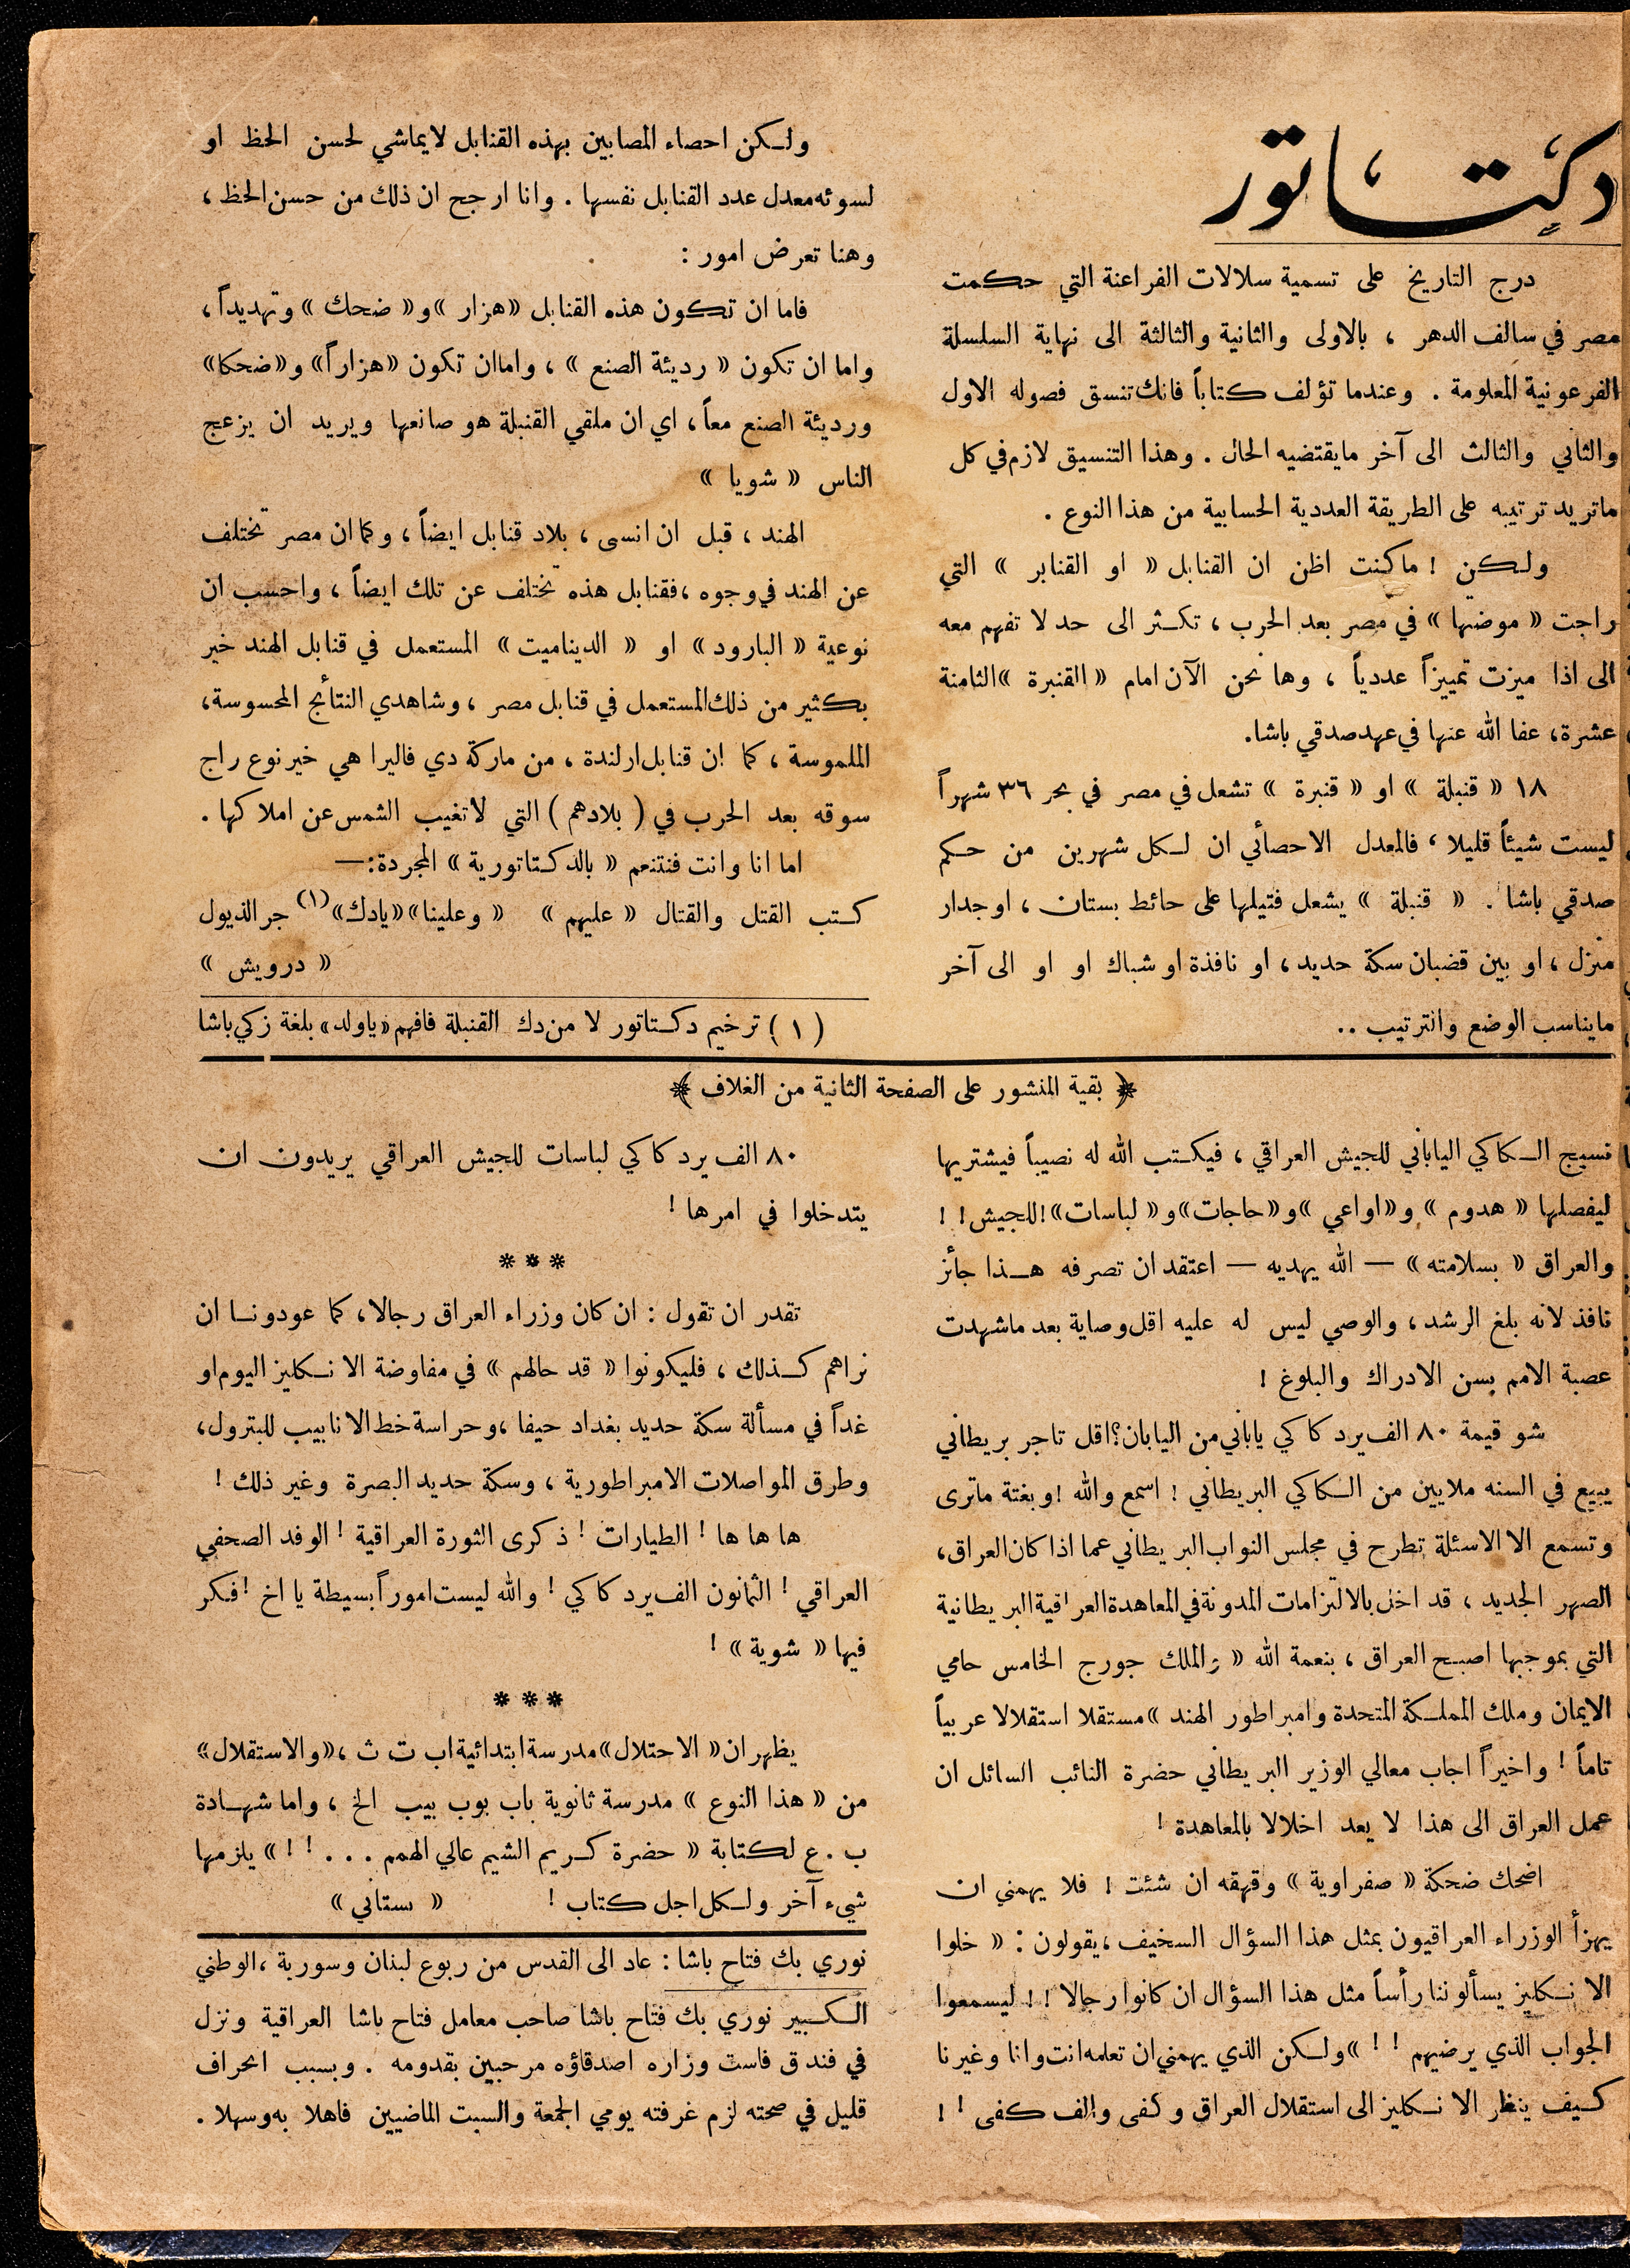 دكتاتور
درج التاريخ على تسمية سلالات الفراعنة التي حكمت
مصر في سالف الدهر ، بالاولى والثانية والثالثة الى نهاية السلسلة
الفرعونية المعلومة . وعندما تؤلف كتاباً فانك تنسق فصوله الاول
والثاني والثالث الى آخر مايقتضيه الحال . وهذا التنسيق لازم في كل
ماتريد ترتيبه على الطريقة العددية الحسابية من هذا النوع .
ولكن ! ماكنت اظن ان القنابل « او القنابر » التي
راجت « موضتها » في مصر بعد الحرب ، تكثر الى حد لا تفهم معه
الى اذا ميزت تمييزاً عددياً ، وها نحن الآن امام « القنبرة » الثامنة
عشرة ، عفا الله عنها في عهد صدقي باشا.
١٨ « قنبلة » او « قنبرة » تشعل في مصر في بحر ٣٦ شهراً
ليست شيئاً قليلا ، فالمعدل الاحصائي ان لكل شهرين من حكم
صدقي باشا . « قنبلة » يشعل فتيلها على حائط بستان ، او جدار
منزل ، او بين قضبان سكة حديد ، او نافذة او شباك او او الى آخر
مايناسب الوضع والترتيب ..
ولكن احصاء المصابين بهذه القنابل لايماشي لحسن الحظ او
لسوئه معدل عدد القنابل نفسها . وانا ارجح ان ذلك من حسن الحظ ،
وهنا تعرض امور :
فاما ان تكون هذه القنابل « هزار » و « ضحك » وتهديداً ،
واما ان تكون « رديئة الصنع » ، واماان تكون « هزاراً » و « ضحكا »
ورديئة الصنع معاً ، اي ان ملقي القنبلة هو صانعها ويريد ان يزعج
الناس « شويا »
الهند ، قبل ان انسى ، بلاد قنابل ايضاً ، وكما ان مصر تختلف
عن الهند في وجوه ، فقنابل هذه تختلف عن تلك ايضاً ، واحسب ان
نوعية « البارود » او « الديناميت » المستعمل في قنابل الهند خير
بكثير من ذلك المستعمل في قنابل مصر ، وشاهدي النتائج المحسوسة ،
الملموسة ، كما ان قنابل ارلندة ، من ماركة دي فاليرا هي خير نوع راج
سوقه بعد الحرب في ( بلادهم ) التي لاتغيب الشمس عن املاكها .
اما انا وانت فنتنعم « بالدكتاتورية » المجردة : —
كتب القتل والقتال « عليهم » « وعلينا » « يادك » (١) جر الذيول
« درويش »
( ١ ) ترخيم دكتاتور لا من دك القنبلة فافهم « ياولد » بلغة زكي باشا
﴿ بقية المنشور على الصفحة الثانية من الغلاف ﴾
نسيج الكاكي الياباني للجيش العراقي ، فيكتب الله له نصيباً فيشتريها
ليفصلها « هدوم » و « اواعي » و « حاجات » و « لباسات » ! للجيش ! !
والعراق « بسلامته » — الله يهديه — اعتقد ان تصرفه هذا جائز
نافذ لانه بلغ الرشد ، والوصي ليس له عليه اقل وصاية بعد ماشهدت
عصبة الامم بسن الادراك والبلوغ !
شو قيمة ٨٠ الف يرد كاكي ياباني من اليابان ؟ اقل تاجر بريطاني
يبيع في السنه ملايين من الكاكي البريطاني ! اسمع والله ! وبغتة ماترى
وتسمع الا الاسئلة تطرح في مجلس النواب البريطاني عما اذا كان العراق ،
الصهر الجديد ، قد اخل بالالتزامات المدونة في المعاهدة العراقية البريطانية
التي بموجبها اصبح العراق ، بنعمة الله « والملك جورج الخامس حامي
الايمان وملك المملكة المتحدة وامبراطور الهند » مستقلا استقلالا عربياً
تاماً ! واخيراً اجاب معالي الوزير البريطاني حضرة النائب السائل ان
عمل العراق الى هذا لا يعد اخلالا بالمعاهدة !
اضحك ضحكة « صفراوية » وقهقه ان شئت ! فلا يهمني ان
يهزأ الوزراء العراقيون بمثل هذا السؤال السخيف ، يقولون : « خلوا
الانكليز يسألوننا رأساً مثل هذا السؤال ان كانوا رجالا ! ! ليسمعوا
الجواب الذي يرضيهم ! ! » ولكن الذي يهمني ان تعلمه انت وانا وغيرنا
كيف ينظر الانكليز الى استقلال العراق وكفى والف كفى ! !
٨٠ الف يرد كاكي لباسات للجيش العراقي يريدون ان
يتدخلوا في امرها !
***
تقدر ان تقول : ان كان وزراء العراق رجالا ، كما عودونا ان
نراهم كذلك ، فليكونوا « قد حالهم » في مفاوضة الانكليز اليوم او
غداً في مسألة سكة حديد بغداد حيفا ، وحراسة خط الانابيب للبترول ،
وطرق المواصلات الامبراطورية ، وسكة حديد البصرة وغير ذلك !
ها ها ها ! الطيارات ! ذكرى الثورة العراقية ! الوفد الصحفي
العراقي ! الثمانون الف يرد كاكي ! والله ليست اموراً بسيطة يا اخ ! فكر
فيها « شوية » !
***
يظهر ان « الاحتلال » مدرسة ابتدائية اب ت ث ، « والاستقلال »
من « هذا النوع » مدرسة ثانوية باب بوب بيب الخ ، واما شهادة
ب . ع لكتابة « حضرة كريم الشيم عالي الهمم . . . ! ! » يلزمها
شيء آخر ولكل اجل كتاب ! « ستاني »
نوري بك فتاح باشا : عاد الى القدس من ربوع لبنان وسورية ، الوطني
الكبير نوري بك فتاح باشا صاحب معامل فتاح باشا العراقية ونزل
في فندق فاست وزاره اصدقاؤه مرحبين بقدومه . وبسبب انحراف
قليل في صحته لزم غرفته يومي الجمعة والسبت الماضيين فاهلا به وسهلا .